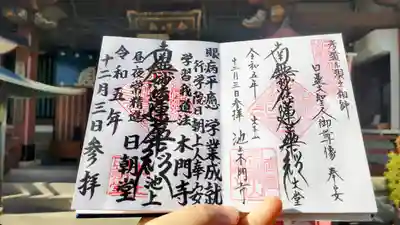 奉安
日蓮大聖人御尊像
南無妙法蓮華経
大堂
令和五年
十二月三日参拝
池上本門寺
眼病平癒 学業成就
学習我道法
南無妙法蓮華経
池上
本門寺
日朝堂
昼夜常精進
令和五年
十二月三日参拝